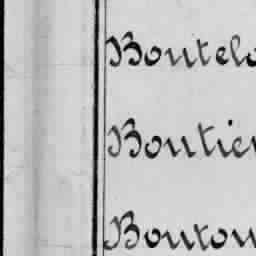 Boutelo
Boutier
Bouton